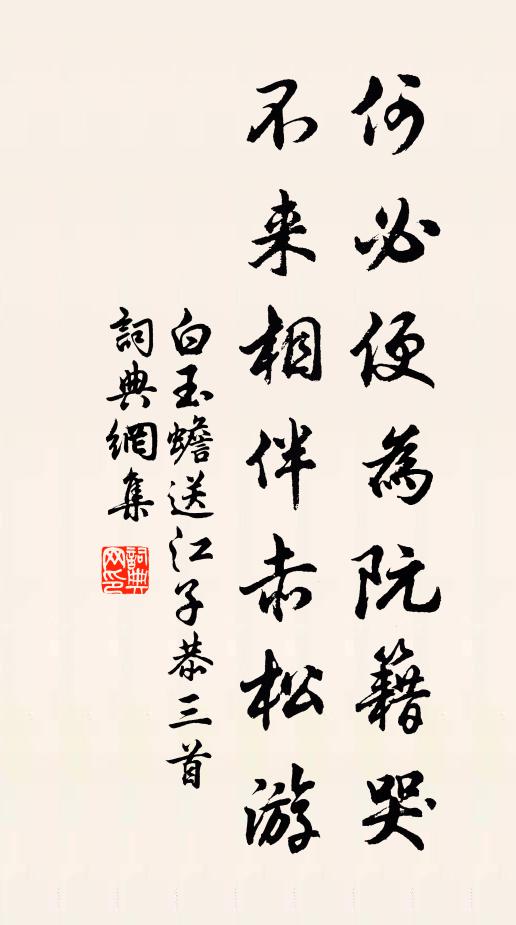 何必便為阮籍哭
不来相伴赤松游
白玉蟾送江子恭三首
詞典網集
詞典网印